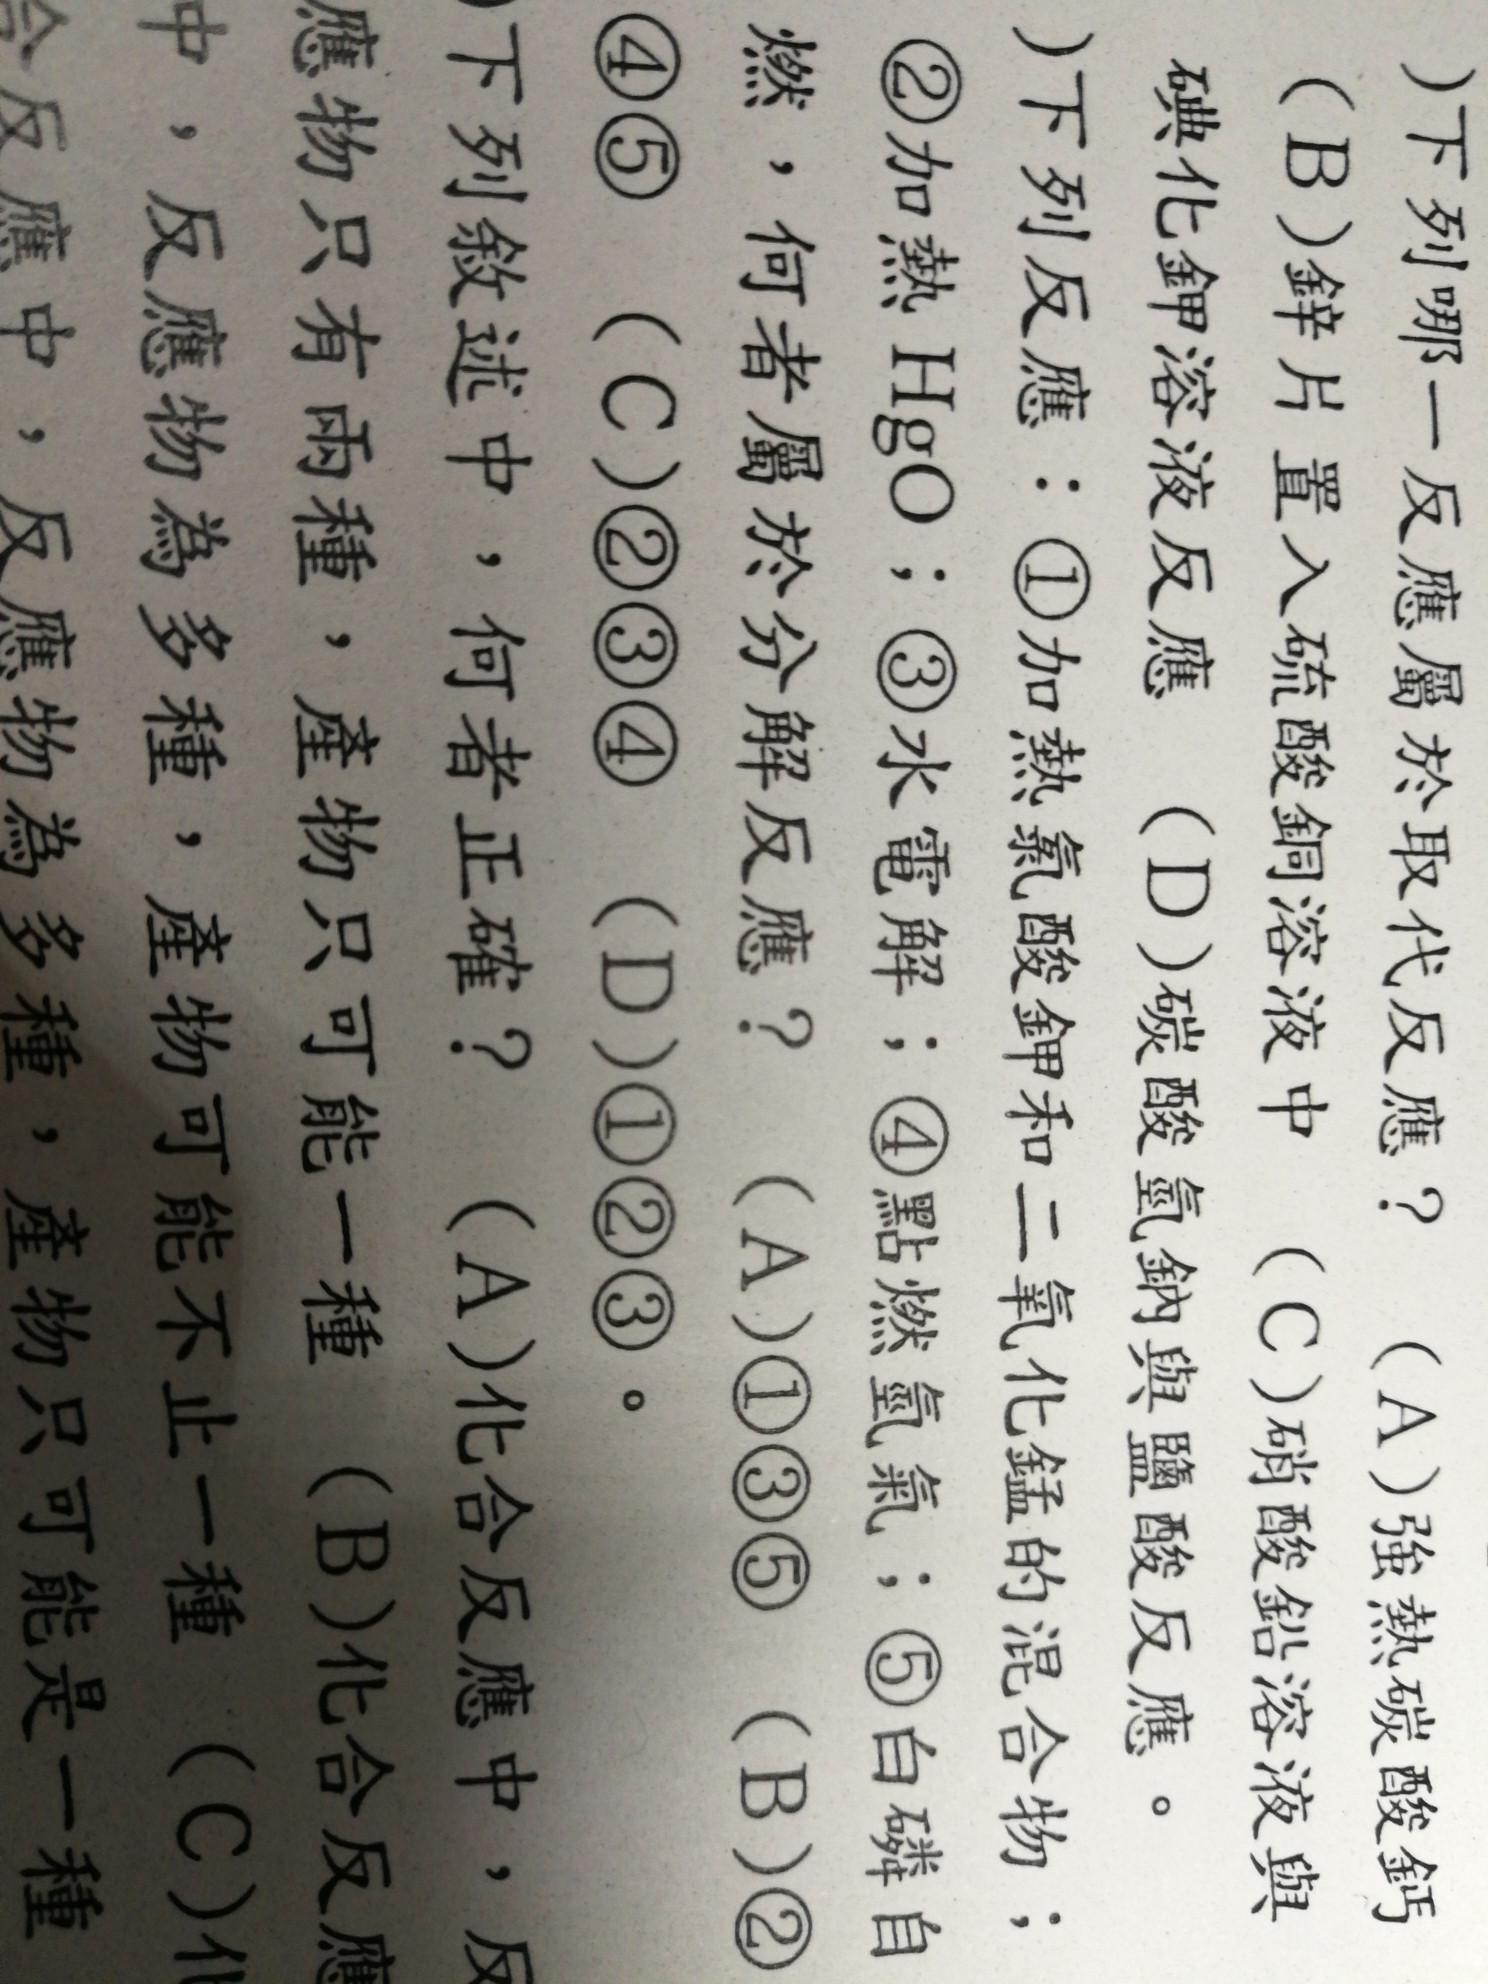 )下列哪一反應屬於取代反應？　(A)強熱碳酸鈣
(B)鋅片置入硫酸銅溶液中　(C)硝酸鉛溶液與
碘化鉀溶液反應　(D)碳酸氫鈉與鹽酸反應。
)下列反應：①加熱氯酸鉀和二氧化錳的混合物；
②加熱 HgO；③水電解；④點燃氫氣；⑤白磷自
燃，何者屬於分解反應？　(A)①③⑤　(B)②
④⑤　(C)②③④　(D)①②③。
)下列敘述中，何者正確？　(A)化合反應中，反
應物只有兩種，產物只可能一種　(B)化合反應
中，反應物為多種，產物可能不止一種　(C)化
合反應中，反應物為多種，產物只可能是一種